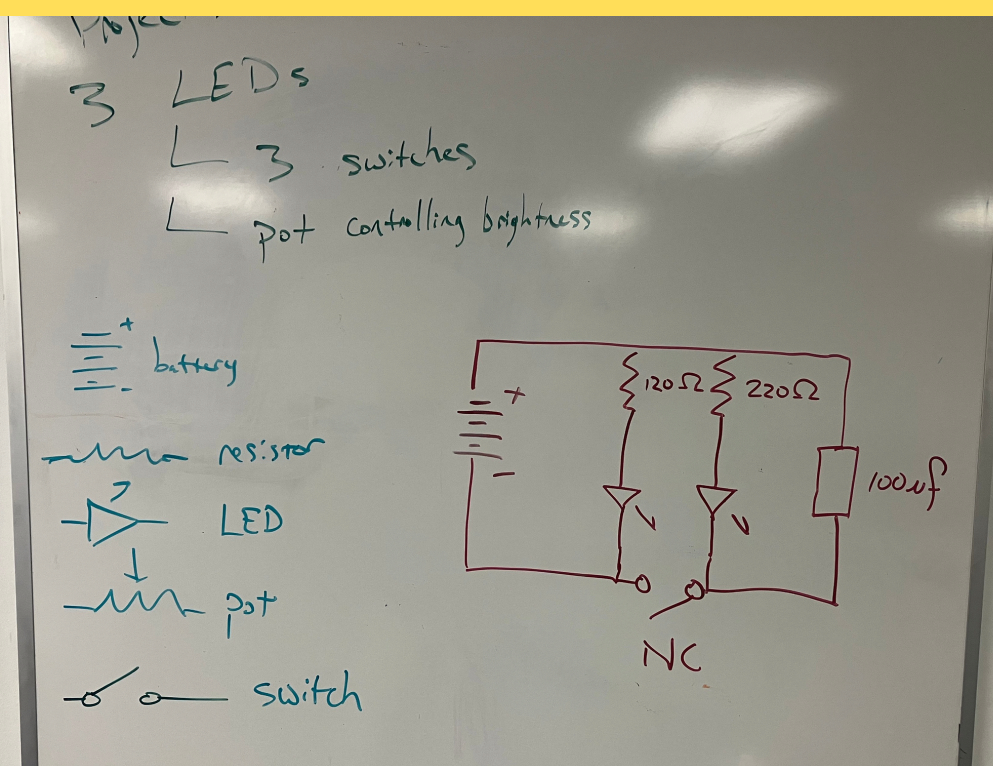 Project
3 LEDs
3 switches
pot controlling brightness
+ battery
-
resistor
LED
pot
switch
+
-
120Ω
220Ω
100uf
NC